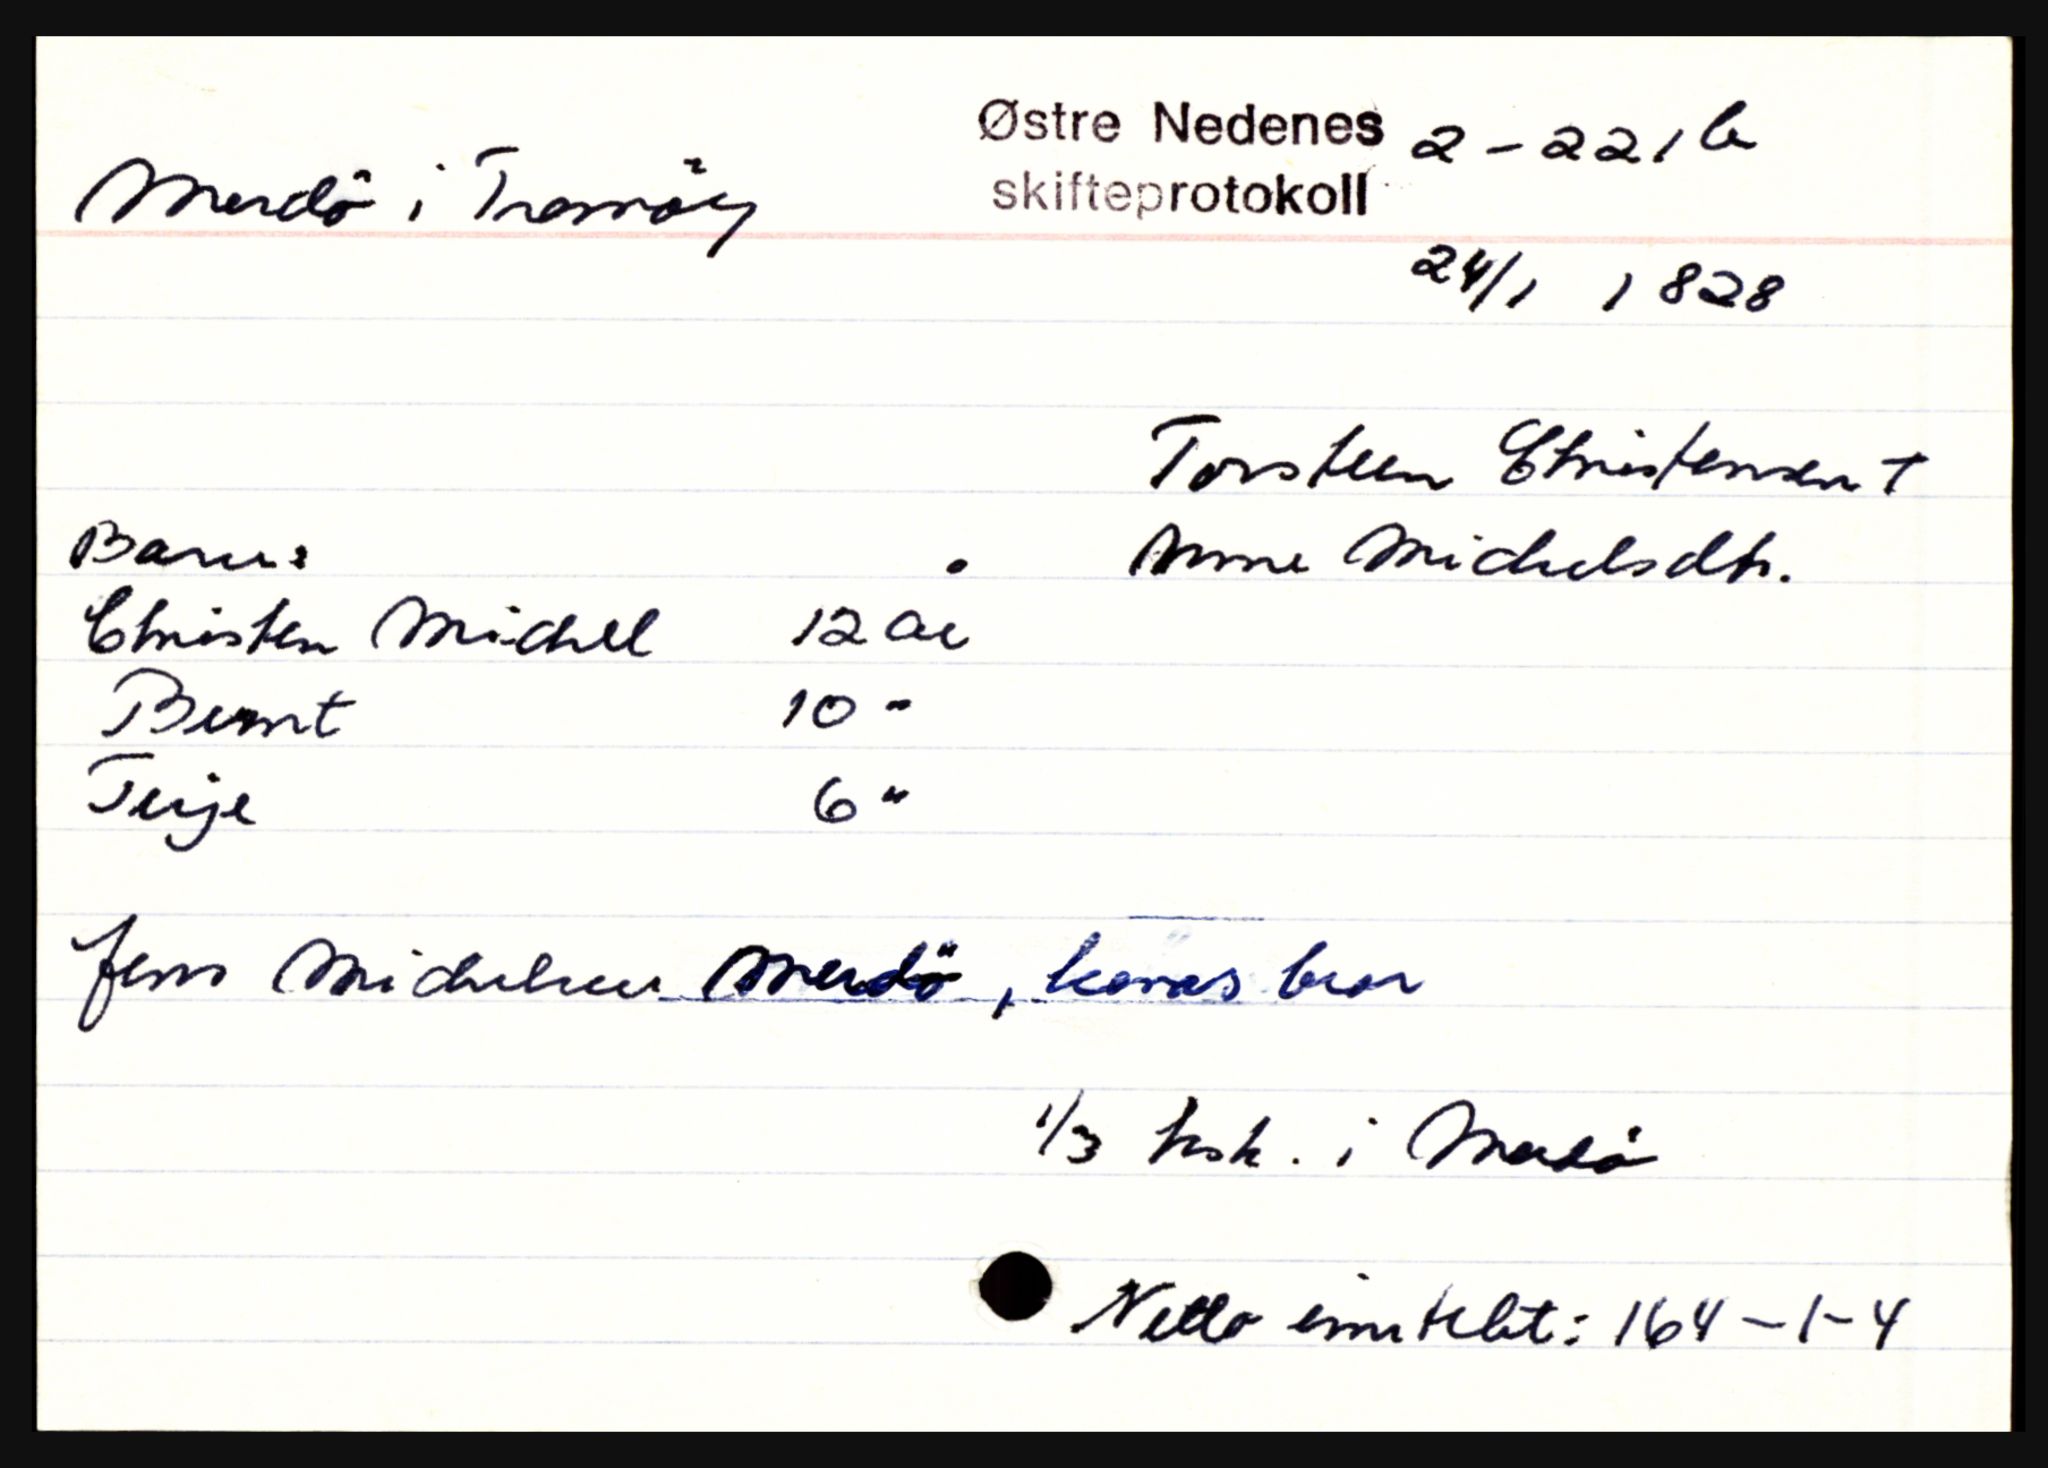 Østre Nedenes 2 - 221 b
Merdö i Tromöy skifteprotokoll
24/1 1828
Torsteen Christensen †
Barn: Anne Michelsdtr.
Christen Michel 12 år
Bernt 10 "
Terje 6 "
Jens Michelsen Merdö, konas bror
1/3 hsk. i Merdö
Netto innteht: 164-1-4